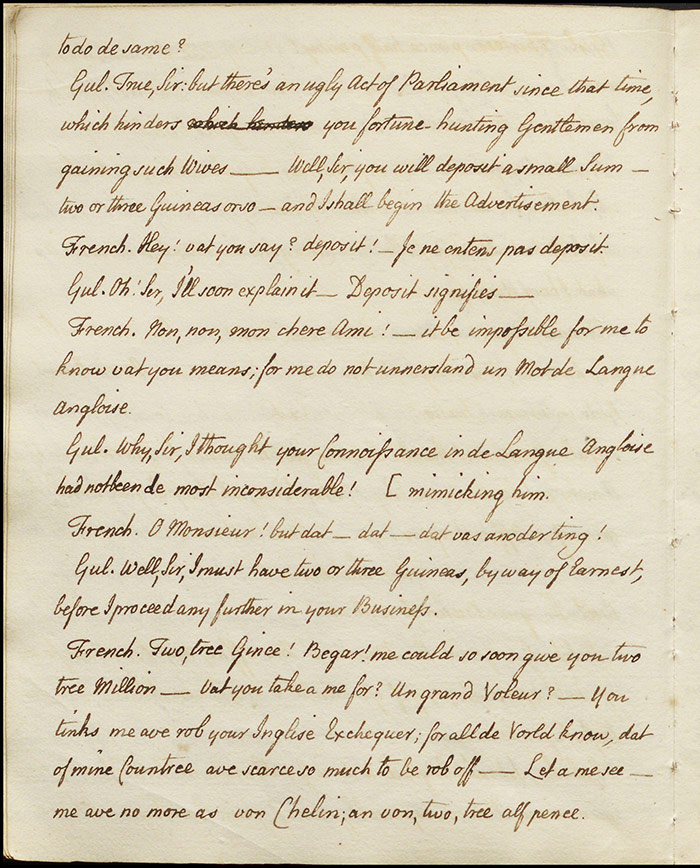 to do de same?
Gul. True, Sir: but there's an ugly Act of Parliament since that time,
which hinders which hinders you fortune-hunting Gentlemen from
gaining such Wives —— Well, Sir, you will deposit a small Sum —
two or three Guineas or so — and I shall begin the Advertisement.
French. Hey! vat you say? deposit! — Je ne entens pas deposit.
Gul. Oh! Sir, I'll soon explain it — Deposit signifies ——
French. Non, non, mon chere Ami! — it be impoſsible for me to
know vat you means; for me do not unnerstand un Mot de Langue
Angloise.
Gul. Why, Sir, I thought your Connoiſsance in de Langue Angloise
had not been de most inconsiderable! [ mimicking him.
French. O Monsieur! but dat — dat — dat vas anoder ting!
Gul. Well, Sir, I must have two or three Guineas, by way of Earnest,
before I proceed any further in your Busineſs.
French. Two, tree Gince! Begar! me could so soon give you two
tree Million — Vat you take a me for? Un grand Voleur? — You
tinks me ave rob your Inglise Exchequer; for all de Vorld know, dat
of mine Countree ave scarce so much to be rob off —— Let a me see —
me ave no more as von Chelin; an von, two, tree alf pence.